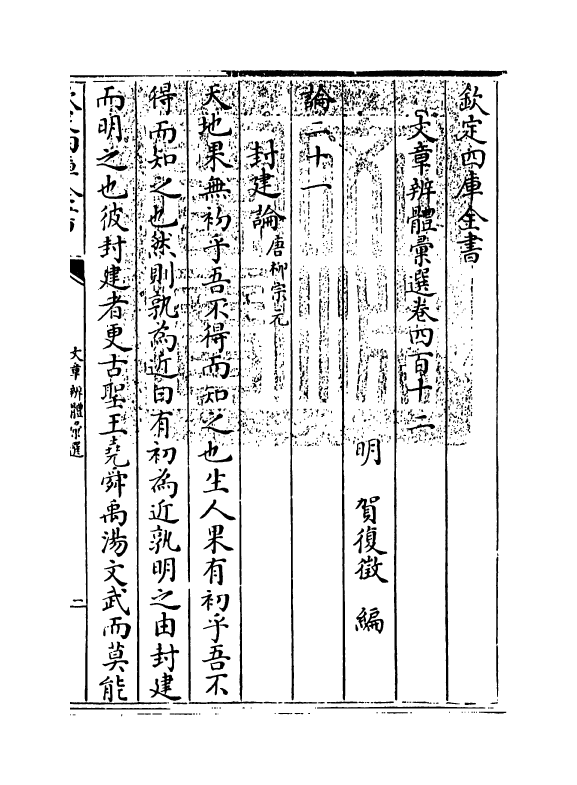 欽定四庫全書
文章辨體彙選卷四百十二
明 賀復徵 編
論二十一
封建論唐柳宗元
天地果無初乎吾不得而知之也生人果有初乎吾不
得而知之也然則孰為近曰有初為近孰明之由封建
而明之也彼封建者更古聖王堯舜禹湯文武而莫能
文章辨體彙選
二